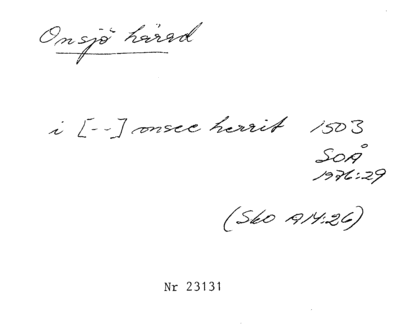 Onsjö härad
i [--] onsee herrit 1503
SOÅ
1976:29
(Sko AM:26)
Nr 23131